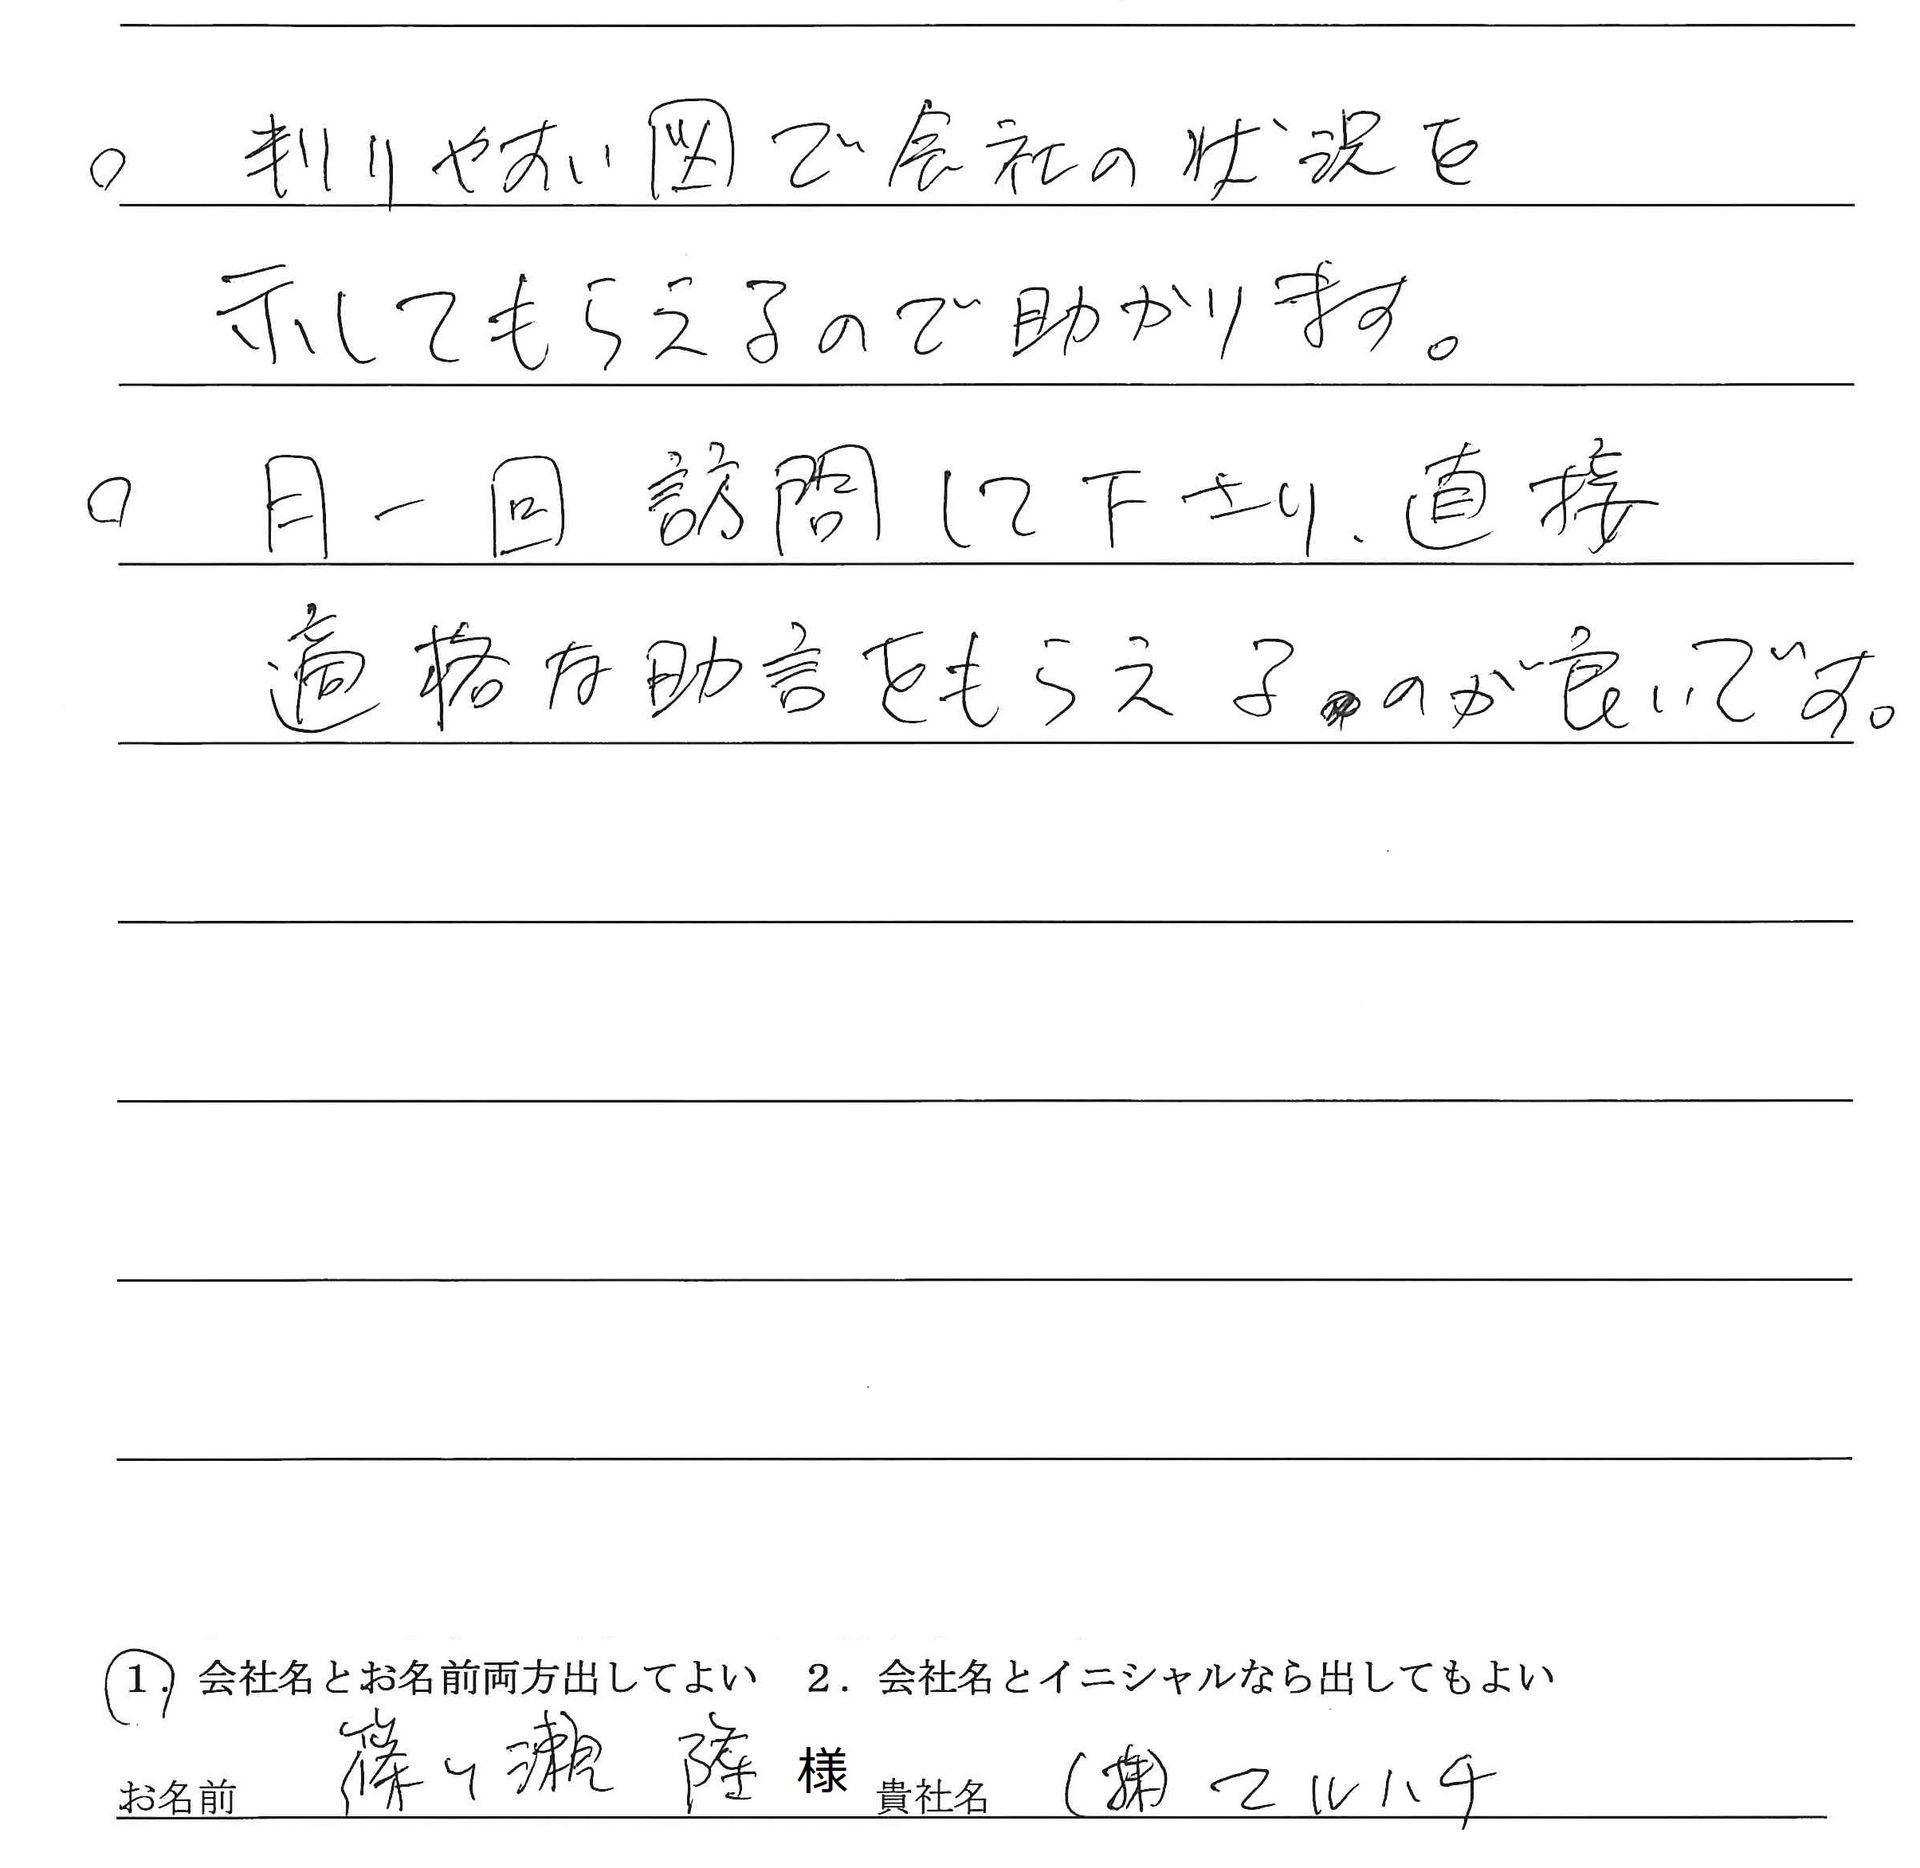 ○ 判りやすい図で会社の状況を
示してもらえるので助かります。
○ 月一回訪問して下さり、直接
適格な助言をもらえるのが良いです。
1. 会社名とお名前両方出してよい 2. 会社名とイニシャルなら出してもよい
お名前 篠ヶ瀬 隆 様 貴社名 (株)マルハチ